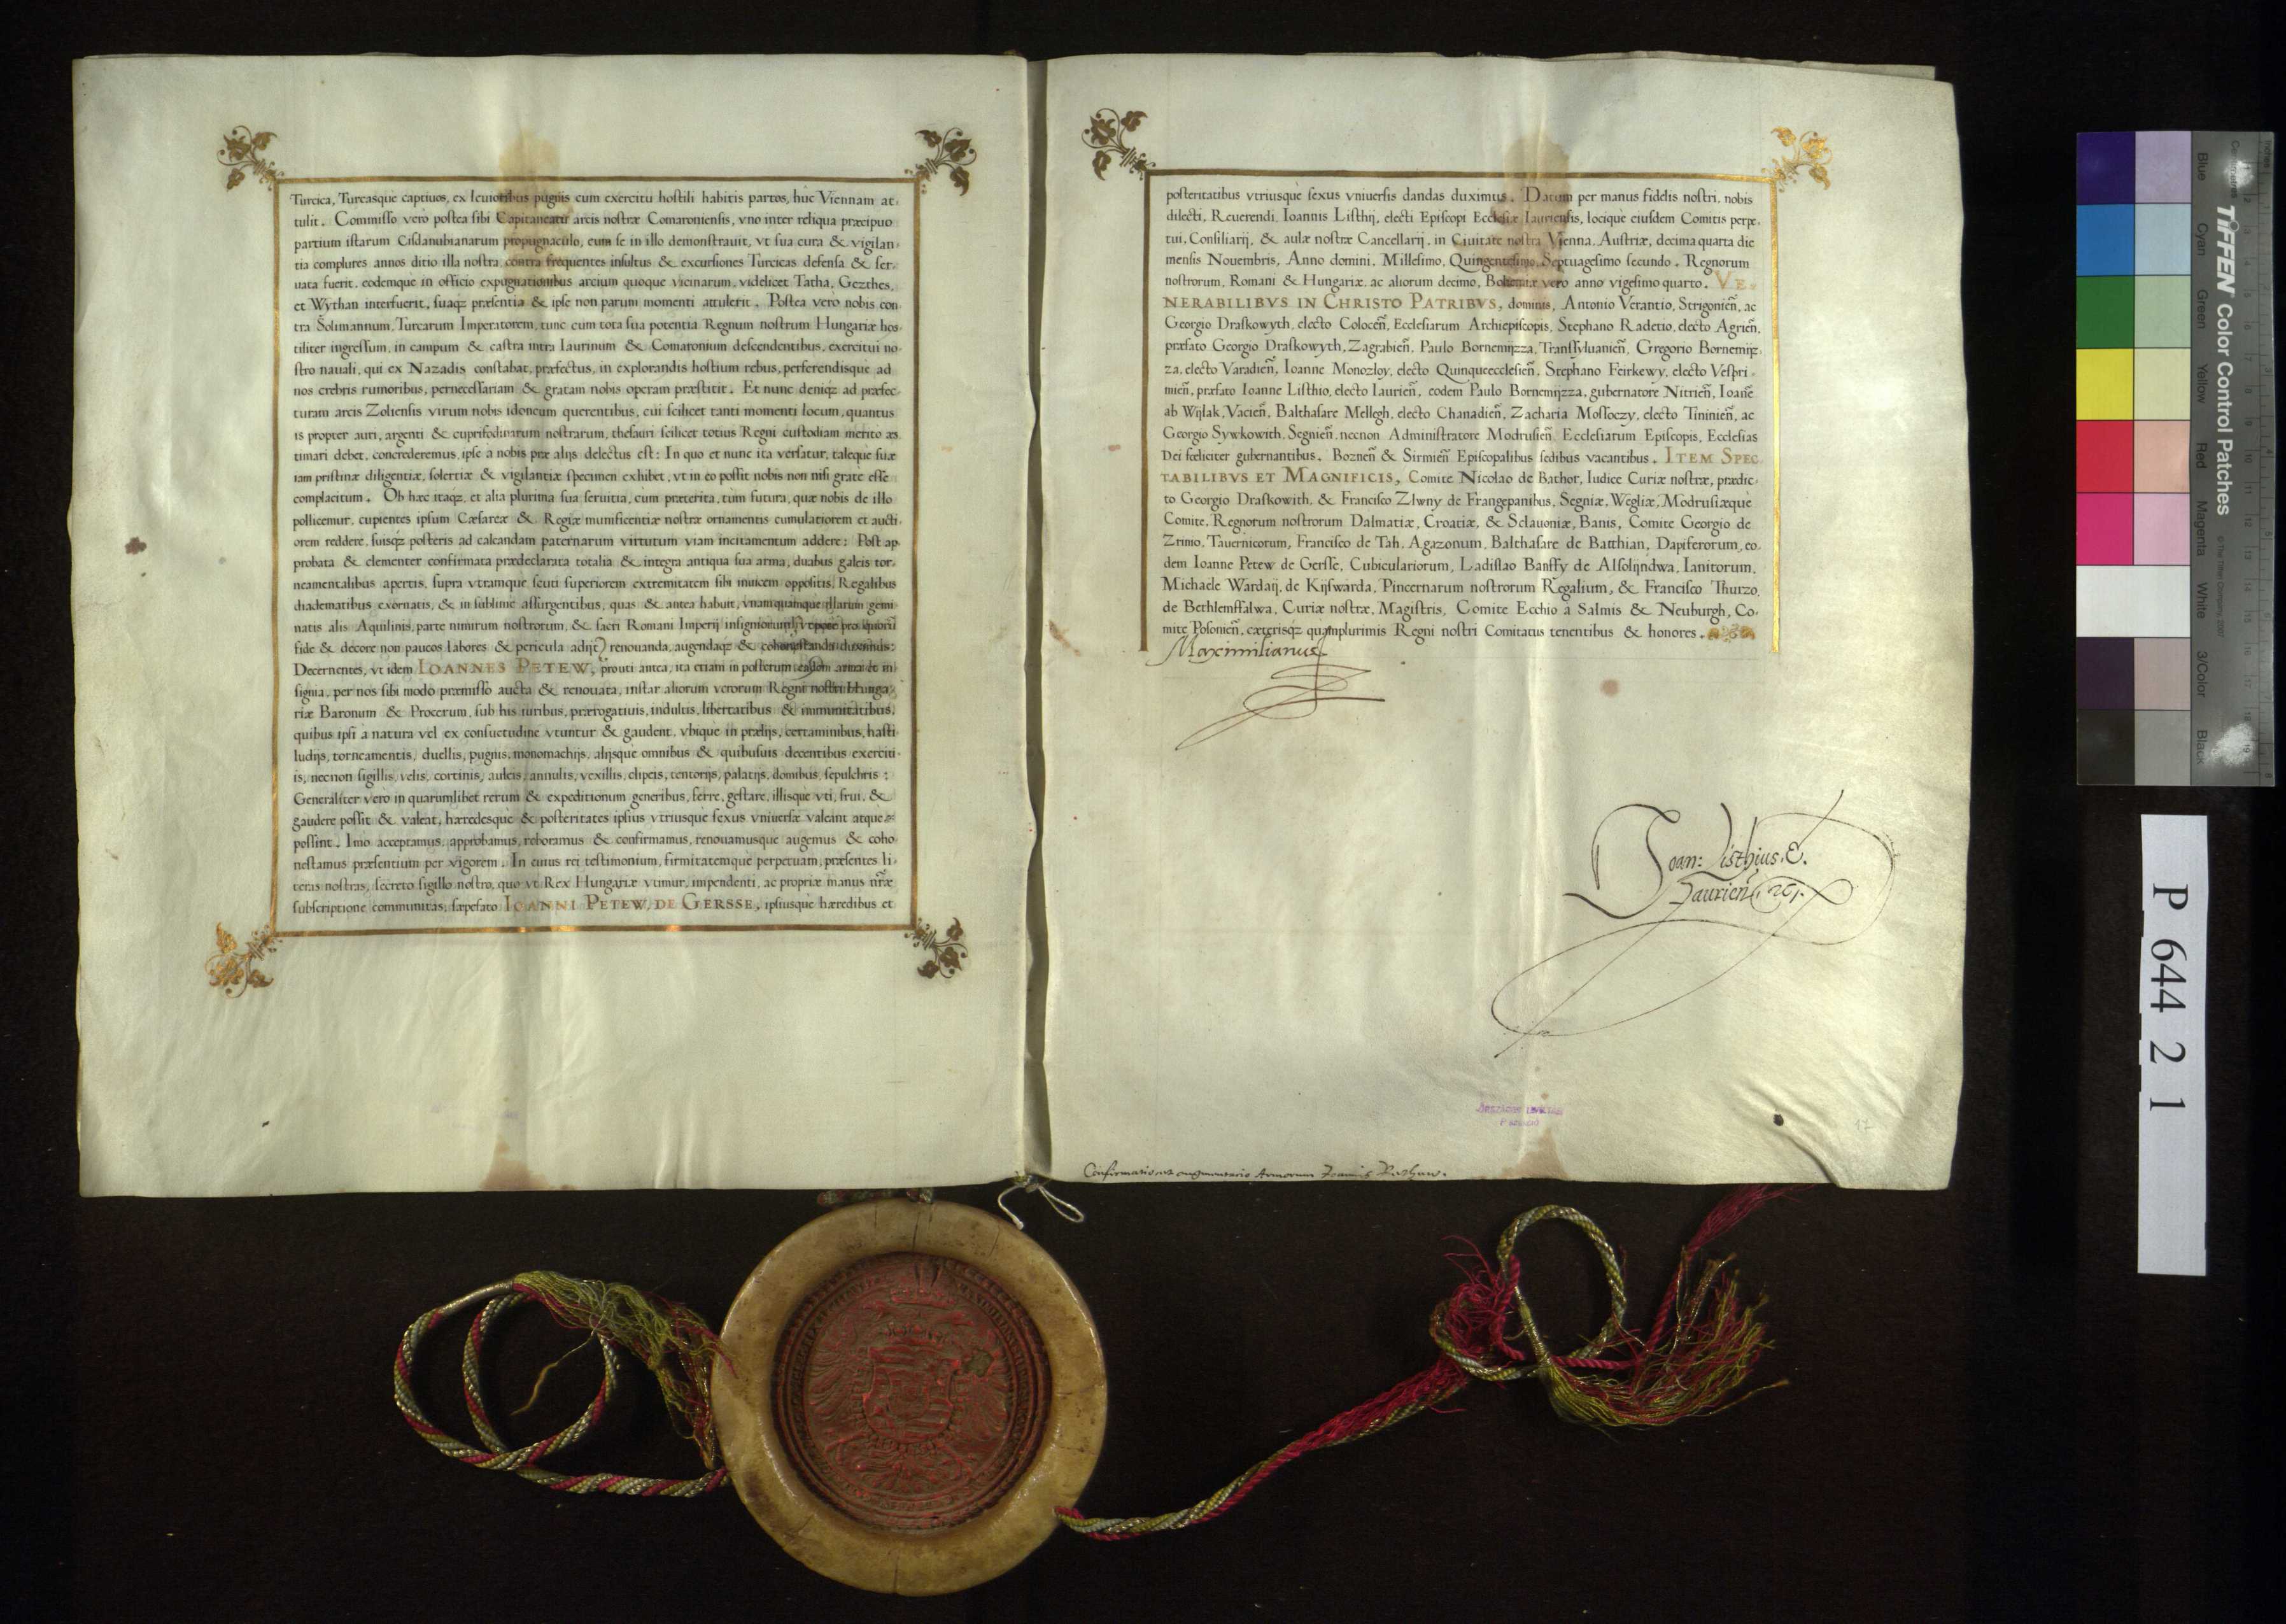 Turcica, Turcasque captiuos, ex leuioribus pugnis cum exercitu hostili habitis partos, huc Viennam at-
tulit. Commisso vero postea sibi Capitaneatu arcis nostræ Comaroniensis, vno inter reliqua præcipuo
partium istarum Cisdanubianarum propugnaculo, eum se in illo demonstrauit, vt sua cura & vigilan-
tia complures annos ditio illa nostra contra frequentes insultus & excursiones Turcicas defensa & ser-
uata fuerit, eodemque in officio expugnationibus arcium quoque vicinarum, videlicet Tatha, Gezthes,
et Wythan interfuerit, suaqz præsentia & ipse non parum momenti attulerit. Postea verò nobis con
tra Solimannum, Turcarum Imperatorem, tunc cum tota sua potentia Regnum nostrum Hungariæ hos-
tiliter ingressum, in campum & castra intra Iaurinum & Comaronium descendentibus, exercitui no-
stro nauali, qui ex Nazadis constabat, præfectus, in explorandis hostium rebus, perferendisque ad
nos crebris rumoribus, pernecessariam & gratam nobis operam præstitit. Et nunc deniqz ad præfec-
turam arcis Zoliensis virum nobis idoneum querentibus, cui scilicet tanti momenti locum, quantus
is propter auri, argenti & cuprifodinarum nostrarum, thesauri scilicet totius Regni custodiam merito æs
timari debet, concrederemus, ipse à nobis præ alijs delectus est: In quo et nunc ita versatur, taleque suæ
iam pristinæ diligentiæ, solertiæ & vigilantiæ specimen exhibet, vt in eo possit nobis non nisi grate esse
complacitum. Ob hæc itaqz, et alia plurima sua seruitia, cùm præterita, tùm futura, quæ nobis de illo
pollicemur, cupientes ipsum Cæsareæ & Regiæ munificentiæ nostræ ornamentis cumulatiorem et aucti-
orem reddere, suisqz posteris ad calcandam paternarum virtutum viam incitamentum addere: Post ap-
probata & clementer confirmata prædeclarata totalia & integra antiqua sua arma, duabus galeis tor-
neamentalibus apertis, supra vtramque scuti superiorem extremitatem sibi inuicem oppositis, Regalibus
diadematibus exornatis, & in sublime assurgentibus, quas & antea habuit, vnamquamque illarum gemi
natis alis Aquilinis, parte nimirum nostrorum, & sacri Romani Imperij insigniorum (vtpote pro quorū
fide & decore non paucos labores & pericula adijt) renouanda, augendaqz & cohonestanda duximus:
Decernentes, vt idem IOANNES PETEW, prouti antea, ita etiam in posterum eadem arma et in
signia, per nos sibi modo præmisso aucta & renouata, instar aliorum verorum Regni nostri Hunga-
riæ Baronum & Procerum, sub his iuribus, prærogatiuis, indultis, libertatibus & immunitatibus,
quibus ipsi à natura vel ex consuetudine vtuntur & gaudent, vbique in prælijs, certaminibus, hasti-
ludijs, torneamentis, duellis, pugnis, monomachijs, alijsque omnibus & quibusuis decentibus exerciti-
is, necnon sigillis, velis, cortinis, auleis, annulis, vexillis, clipeis, tentorijs, palatijs, domibus, sepulchris:
Generaliter vero in quarumlibet rerum & expeditionum generibus, ferre, gestare, illisque vti, frui, &
gaudere possit & valeat, hæredesque & posteritates ipsius vtriusque sexus vniuersæ valeant atque
possint. Imo acceptamus, approbamus, roboramus & confirmamus, renouamusque augemus & coho-
nestamus præsentium per vigorem. In cuius rei testimonium, firmitatemque perpetuam, præsentes li-
teras nostras, secreto sigillo nostro, quo vt Rex Hungariæ vtimur, impendenti, ac propriæ manus nr̃æ
subscriptione communitas, sæpefato IOANNI PETEW, DE GERSSE, ipsiusque hæredibus et
posteritatibus vtriusque sexus vniuersis dandas duximus. Datum per manus fidelis nostri, nobis
dilecti, Reuerendi, Ioannis Listhij, electi Episcopi Ecclesiæ Iauriensis, locique eiusdem Comitis perpe-
tui, Consiliarij, & aulæ nostræ Cancellarij, in Ciuitate nostra Vienna, Austriæ, decima quarta die
mensis Nouembris, Anno domini, Millesimo, Quingentesimo, Septuagesimo secundo. Regnorum
nostrorum, Romani & Hungariæ, ac aliorum decimo, Bohemiæ vero anno vigesimo quarto. VE-
NERABILIBVS IN CHRISTO PATRIBVS, dominis, Antonio Verantio, Strigonien̄, ac
Georgio Draskowyth, electo Colocen̄, Ecclesiarum Archiepiscopis, Stephano Radetio, electo Agrien̄,
præfato Georgio Draskowyth, Zagrabien̄, Paulo Bornemijzza, Transsyluanien̄, Gregorio Bornemijz-
za, electo Varadien̄, Ioanne Monozloy, electo Quinqueecclesien̄, Stephano Feirkewy, electo Vespri-
mien̄, præfato Ioanne Listhio, electo Iaurien̄, eodem Paulo Bornemijzza, gubernatore Nitrien̄, Ioanē
ab Wijlak, Vacien̄, Balthasare Mellegh, electo Chanadien̄, Zacharia Mossoczy, electo Tininien̄, ac
Georgio Sywkowith, Segnien̄, necnon Administratore Modrusien̄ Ecclesiarum Episcopis, Ecclesias
Dei fœliciter gubernantibus. Boznen̄ & Sirmien̄ Episcopalibus sedibus vacantibus. ITEM SPEC
TABILIBVS ET MAGNIFICIS, Comite Nicolao de Bathor, Iudice Curiæ nostræ, prædic-
to Georgio Draskowith, & Francisco Zlwny de Frangepanibus, Segniæ, Wegliæ, Modrusiæque
Comite, Regnorum nostrorum Dalmatiæ, Croatiæ, & Sclauoniæ, Banis, Comite Georgio de
Zrinio, Tauernicorum, Francisco de Tah, Agazonum, Balthasare de Batthian, Dapiferorum, eo-
dem Ioanne Petew de Gersse, Cubiculariorum, Ladislao Banffy de Alsolijndwa, Ianitorum,
Michaele Wardaij, de Kijswarda, Pincernarum nostrorum Regalium, & Francisco Thurzo,
de Bethlemffalwa, Curiæ nostræ, Magistris, Comite Ecchio à Salmis & Neuburgh, Co-
mite Posonien̄, cæterisqz quamplurimis Regni nostri Comitatus tenentibus & honores.
Maximilianus
Joan: Listhius. E.
Jaurien̄
ORSZÁGOS LEVÉLTÁR
Confirmatio et augmentatio Armorum Joannis Pethew.
17
P 644 2 1
TIFFEN Color Control Patches
© The Tiffen Company, 2007
Blue
Cyan
Green
Yellow
Red
Magenta
White
3/Color
Black